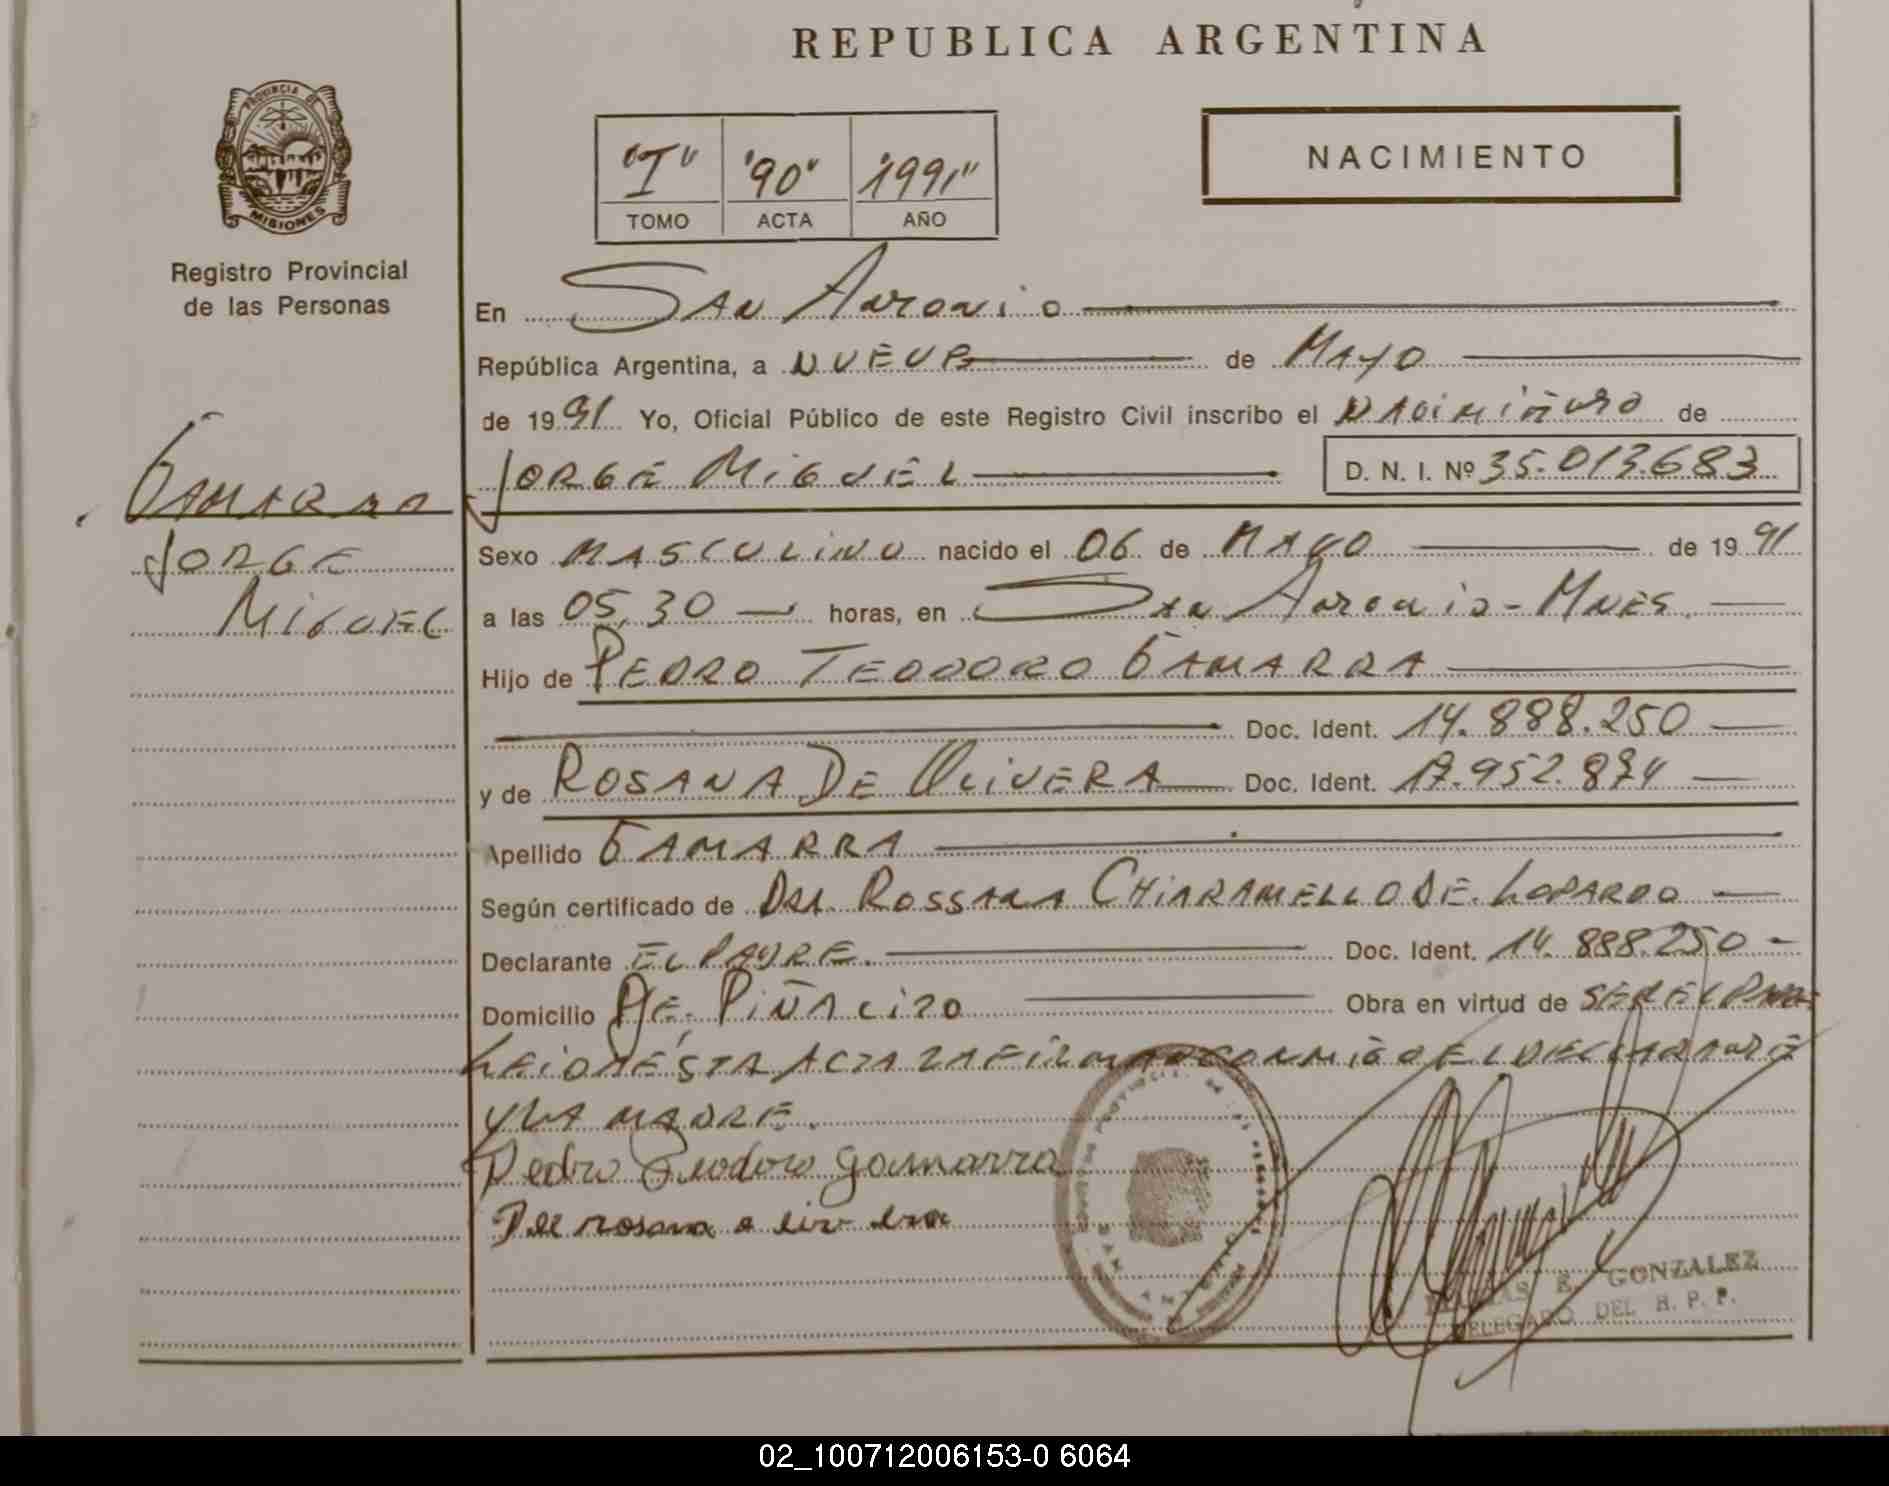 REPUBLICA ARGENTINA
PROVINCIA DE
MISIONES
Registro Provincial
de las Personas
"I" "90" "1991"
TOMO ACTA AÑO
NACIMIENTO
En San Antonio
República Argentina, a NUEVE de MAYO
de 1991 Yo, Oficial Público de este Registro Civil inscribo el NACIMIENTO de
JORGE MIGUEL D. N. I. Nº 35.013.683
GAMARRA
JORGE
MIGUEL
Sexo MASCULINO nacido el 06 de MAYO de 1991
a las 05,30 horas, en San Antonio - MNES.
Hijo de PEDRO TEODORO GAMARRA
Doc. Ident. 14.888.250
y de ROSANA DE OLIVERA Doc. Ident. 17.952.874
Apellido GAMARRA
Según certificado de DRA. ROSSANA CHIARAMELLO DE LOPARDO
Declarante EL PADRE. Doc. Ident. 14.888.250
Domicilio PJE. PIÑALITO Obra en virtud de SER EL PADRE
LEIDA ÉSTA ACTA LA FIRMAN CONMIGO EL DECLARANTE
Y LA MADRE.
Pedro Teodoro gamarra
De rosana o liv era
SAN ANTONIO
E. GONZALEZ
DELEGADO DEL R. P. P.
02_100712006153-0 6064